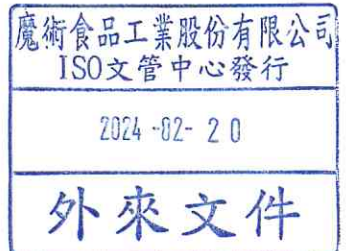 魔術食品工業股份有限公司
ISO文管中心發行
2024-02-20
外來文件